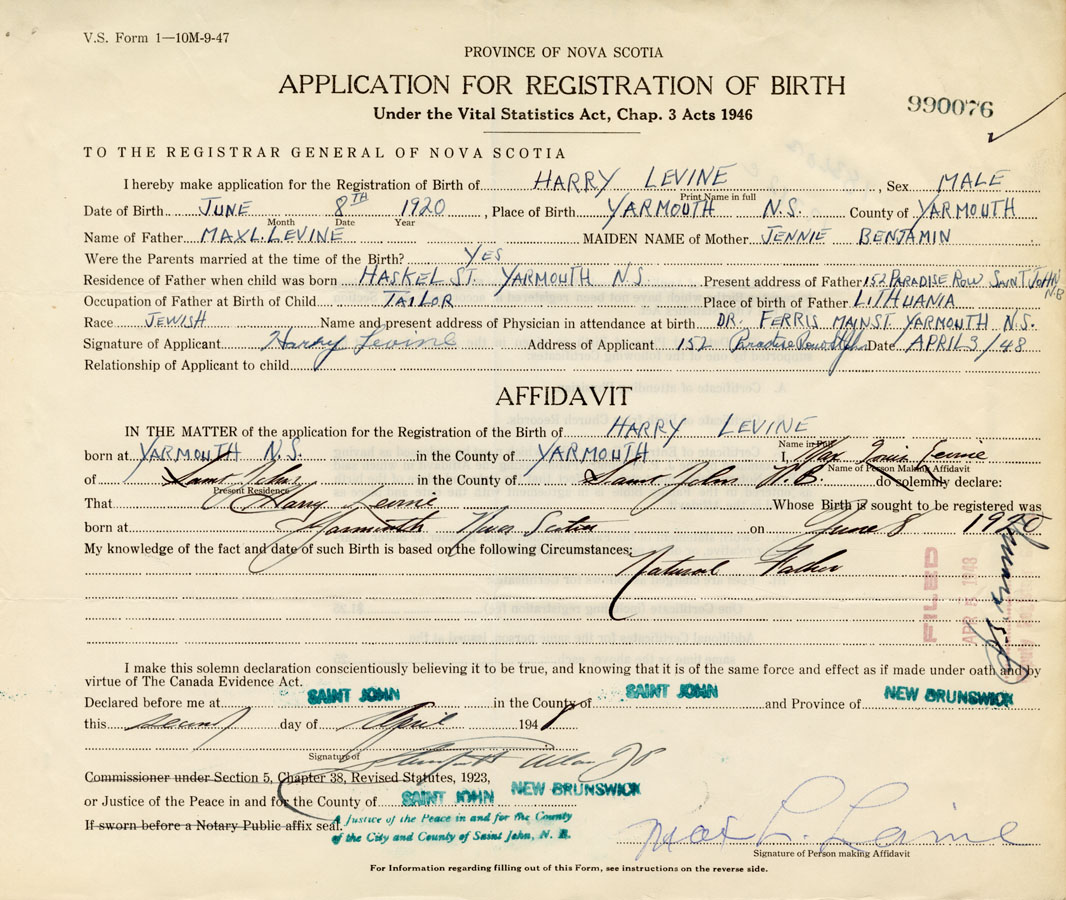 V.S. Form 1—10M-9-47
PROVINCE OF NOVA SCOTIA
APPLICATION FOR REGISTRATION OF BIRTH
990076
Under the Vital Statistics Act, Chap. 3 Acts 1946
TO THE REGISTRAR GENERAL OF NOVA SCOTIA
I hereby make application for the Registration of Birth of HARRY LEVINE, Sex MALE
Print Name in full
Date of Birth JUNE 8TH 1920, Place of Birth YARMOUTH N.S. County of YARMOUTH
Month Date Year
Name of Father MAX L. LEVINE MAIDEN NAME of Mother JENNIE BENJAMIN
Were the Parents married at the time of the Birth? YES
Residence of Father when child was born HASKEL ST. YARMOUTH N.S. Present address of Father 152 PARADISE ROW SAINT JOHN N.B
Occupation of Father at Birth of Child TAILOR Place of birth of Father LITHUANIA
Race JEWISH Name and present address of Physician in attendance at birth DR. FERRIS MAIN ST. YARMOUTH N.S.
Signature of Applicant Harry Levine Address of Applicant 152 Paradise Row Date APRIL 3/48
Relationship of Applicant to child
AFFIDAVIT
IN THE MATTER of the application for the Registration of the Birth of HARRY LEVINE
Name in Full
born at YARMOUTH N.S. in the County of YARMOUTH I, Max Louis Levine
Name of Person Making Affidavit
of Saint John in the County of Saint John N.B. do solemnly declare:
Present Residence
That Harry Levine Whose Birth is sought to be registered was
born at Yarmouth Nova Scotia on June 8 1920
My knowledge of the fact and date of such Birth is based on the following Circumstances:
Natural Father
FILED
APR 1948
I make this solemn declaration conscientiously believing it to be true, and knowing that it is of the same force and effect as if made under oath and by
virtue of The Canada Evidence Act.
Declared before me at SAINT JOHN in the County of SAINT JOHN and Province of NEW BRUNSWICK
this second day of April 1948
Signature of
Commissioner under Section 5, Chapter 38, Revised Statutes, 1923,
or Justice of the Peace in and for the County of SAINT JOHN NEW BRUNSWICK
If sworn before a Notary Public affix seal.
A Justice of the Peace in and for the County
of the City and County of Saint John, N. B.
Max L. Levine
Signature of Person making Affidavit
For Information regarding filling out of this Form, see instructions on the reverse side.